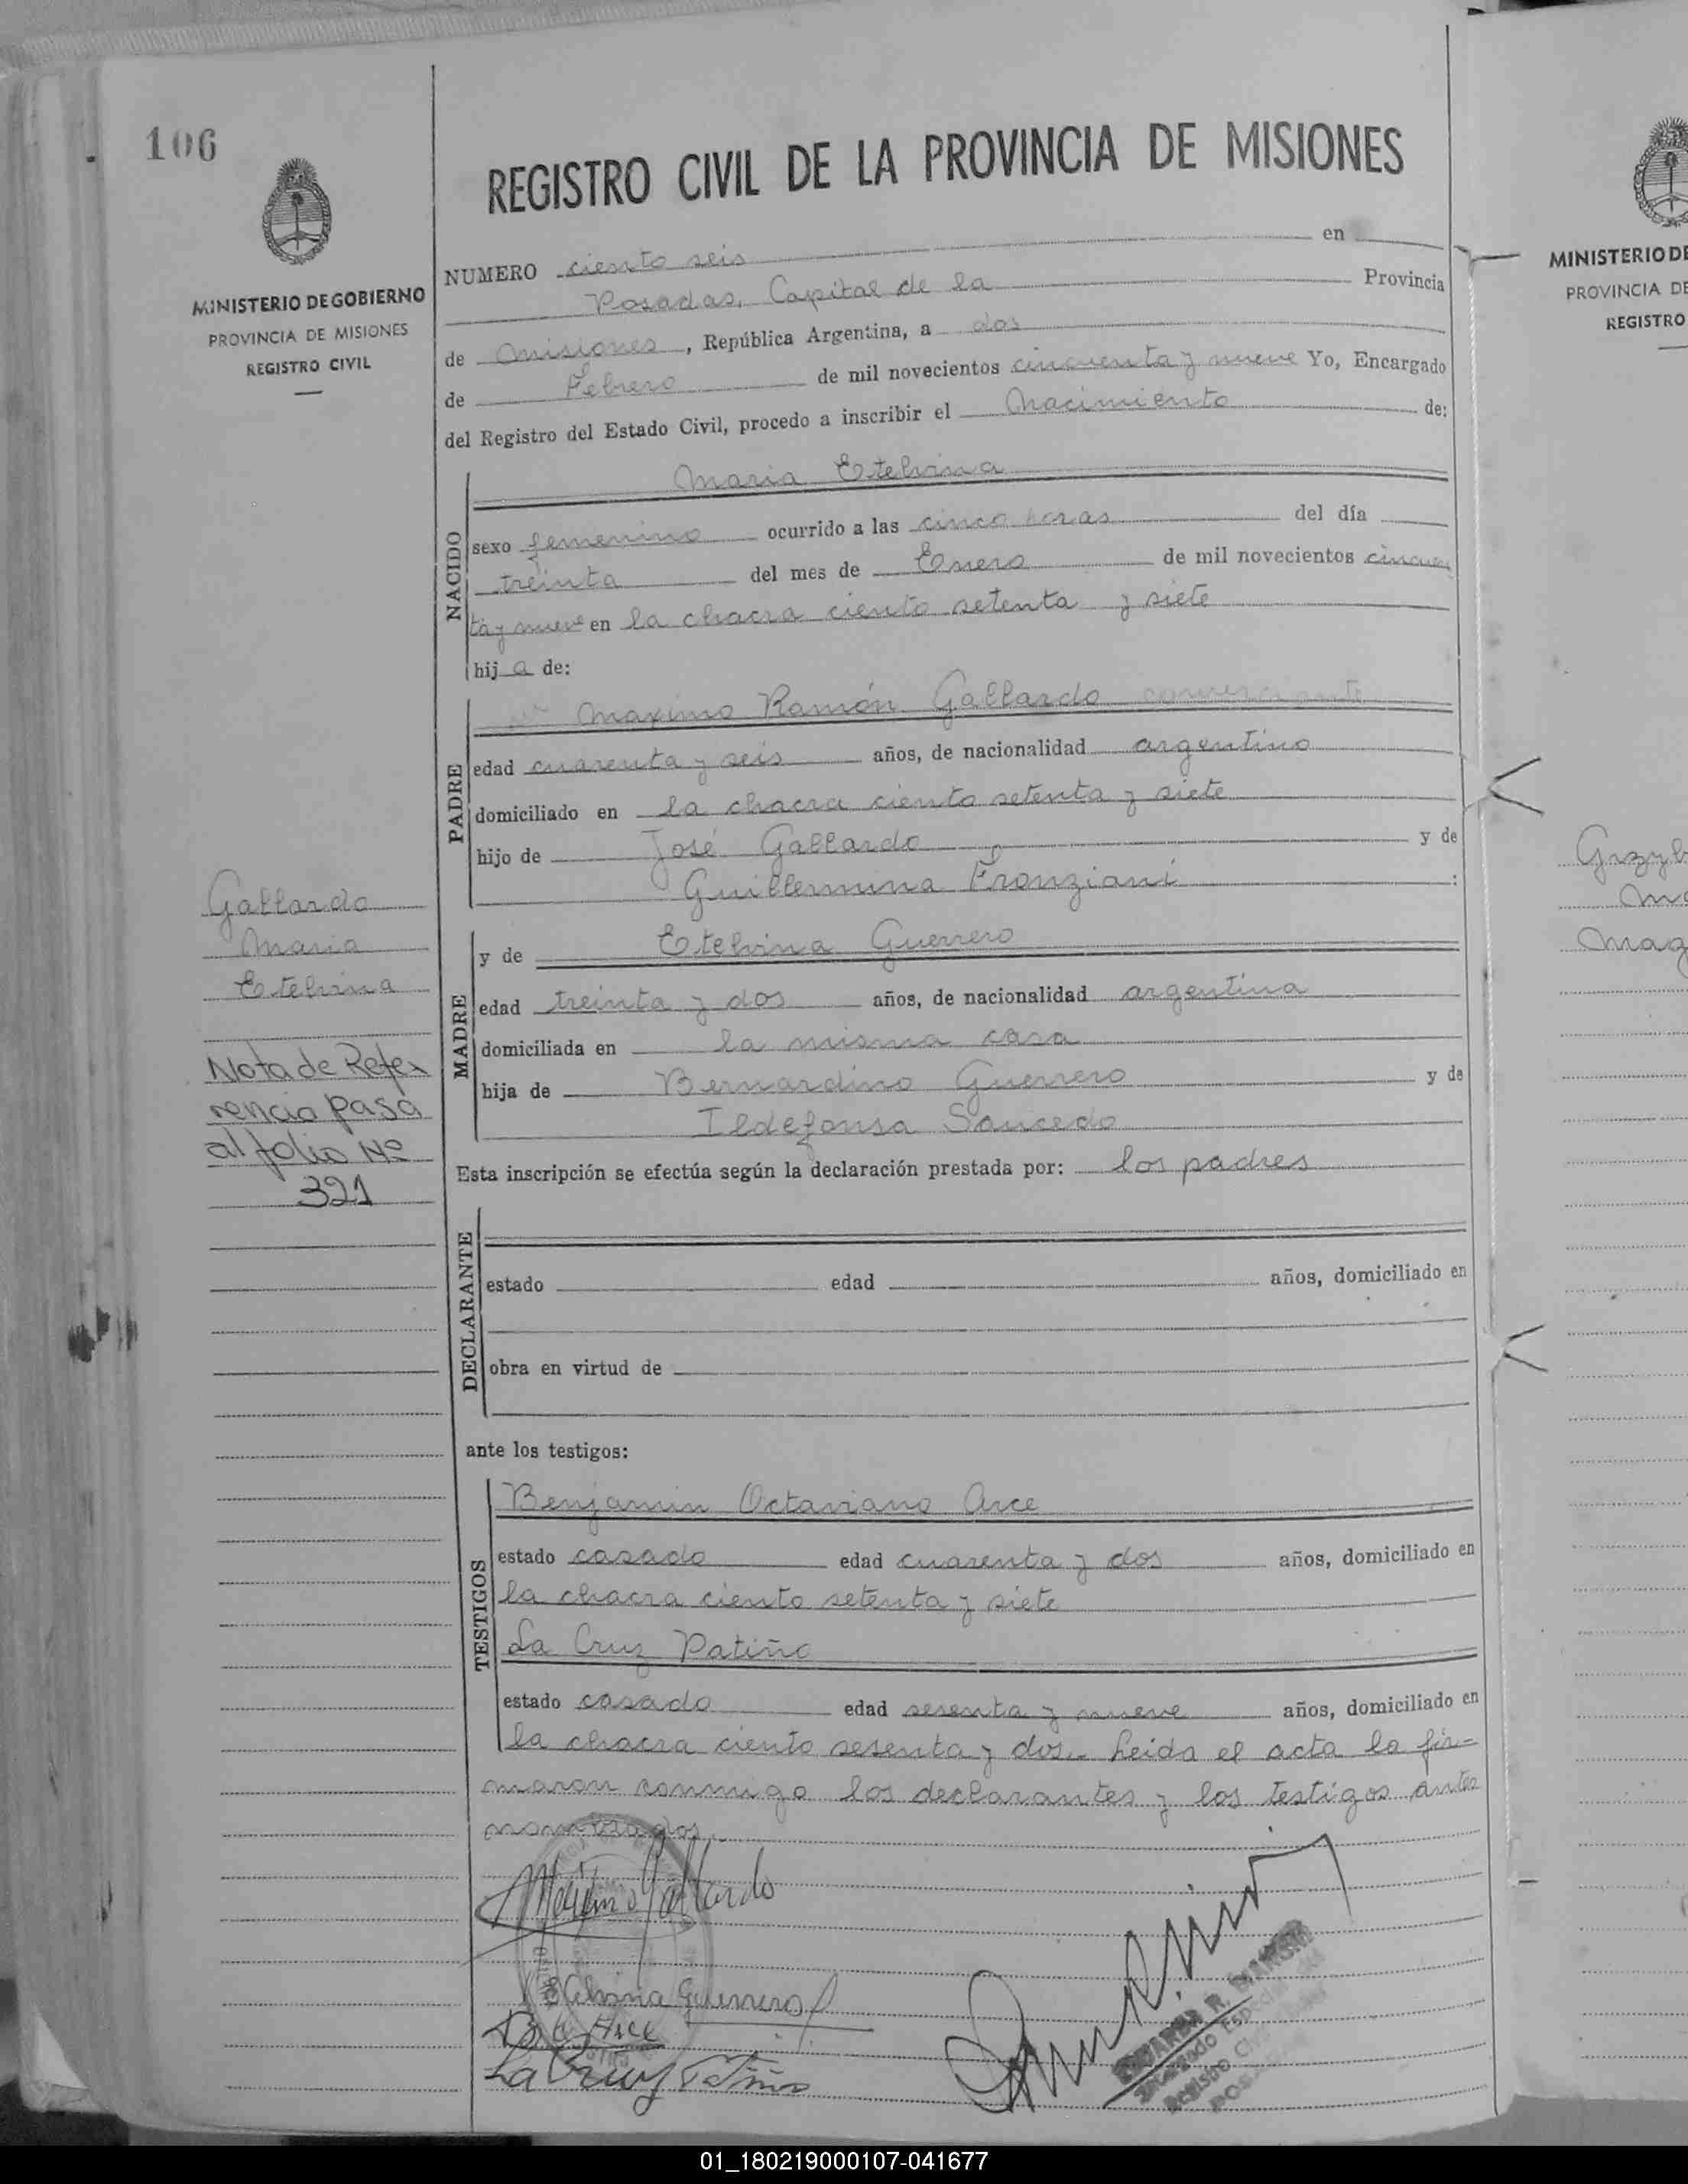 106
REGISTRO CIVIL DE LA PROVINCIA DE MISIONES
MINISTERIO DE GOBIERNO
PROVINCIA DE MISIONES
REGISTRO CIVIL
NUMERO ciento seis en
Posadas, Capital de la Provincia
de Misiones, República Argentina, a dos
de Febrero de mil novecientos cincuenta y nueve Yo, Encargado
del Registro del Estado Civil, procedo a inscribir el Nacimiento de:
NACIDO
Maria Etelvina
sexo femenino ocurrido a las cinco horas del día
treinta del mes de Enero de mil novecientos cincuen
ta y nueve en la chacra ciento setenta y siete
hij a de:
PADRE
Maximo Ramón Gallardo comerciante
edad cuarenta y seis años, de nacionalidad argentino
domiciliado en la chacra ciento setenta y siete
hijo de José Gallardo y de
Guillermina Fronziani :
MADRE
y de Etelvina Guerrero
edad treinta y dos años, de nacionalidad argentina
domiciliada en la misma casa
hija de Bernardino Guerrero y de
Ildefonsa Saucedo
Esta inscripción se efectúa según la declaración prestada por: los padres
DECLARANTE
estado edad años, domiciliado en
obra en virtud de
ante los testigos:
TESTIGOS
Benjamin Octaviano Arce
estado casado edad cuarenta y dos años, domiciliado en
la chacra ciento setenta y siete
La Cruz Patiño
estado casado edad sesenta y nueve años, domiciliado en
la chacra ciento sesenta y dos.- Leida el acta la fir-
maron conmigo los declarantes y los testigos antes
nombrados.
Máximo Gallardo
Etelvina Guerrero
B. O. Arce
La Cruz Patiño
Gallardo
Maria
Etelvina
Nota de Refe
rencia pasa
al folio Nº
321
MINISTERIO DE
PROVINCIA DE
REGISTRO
01_180219000107-041677